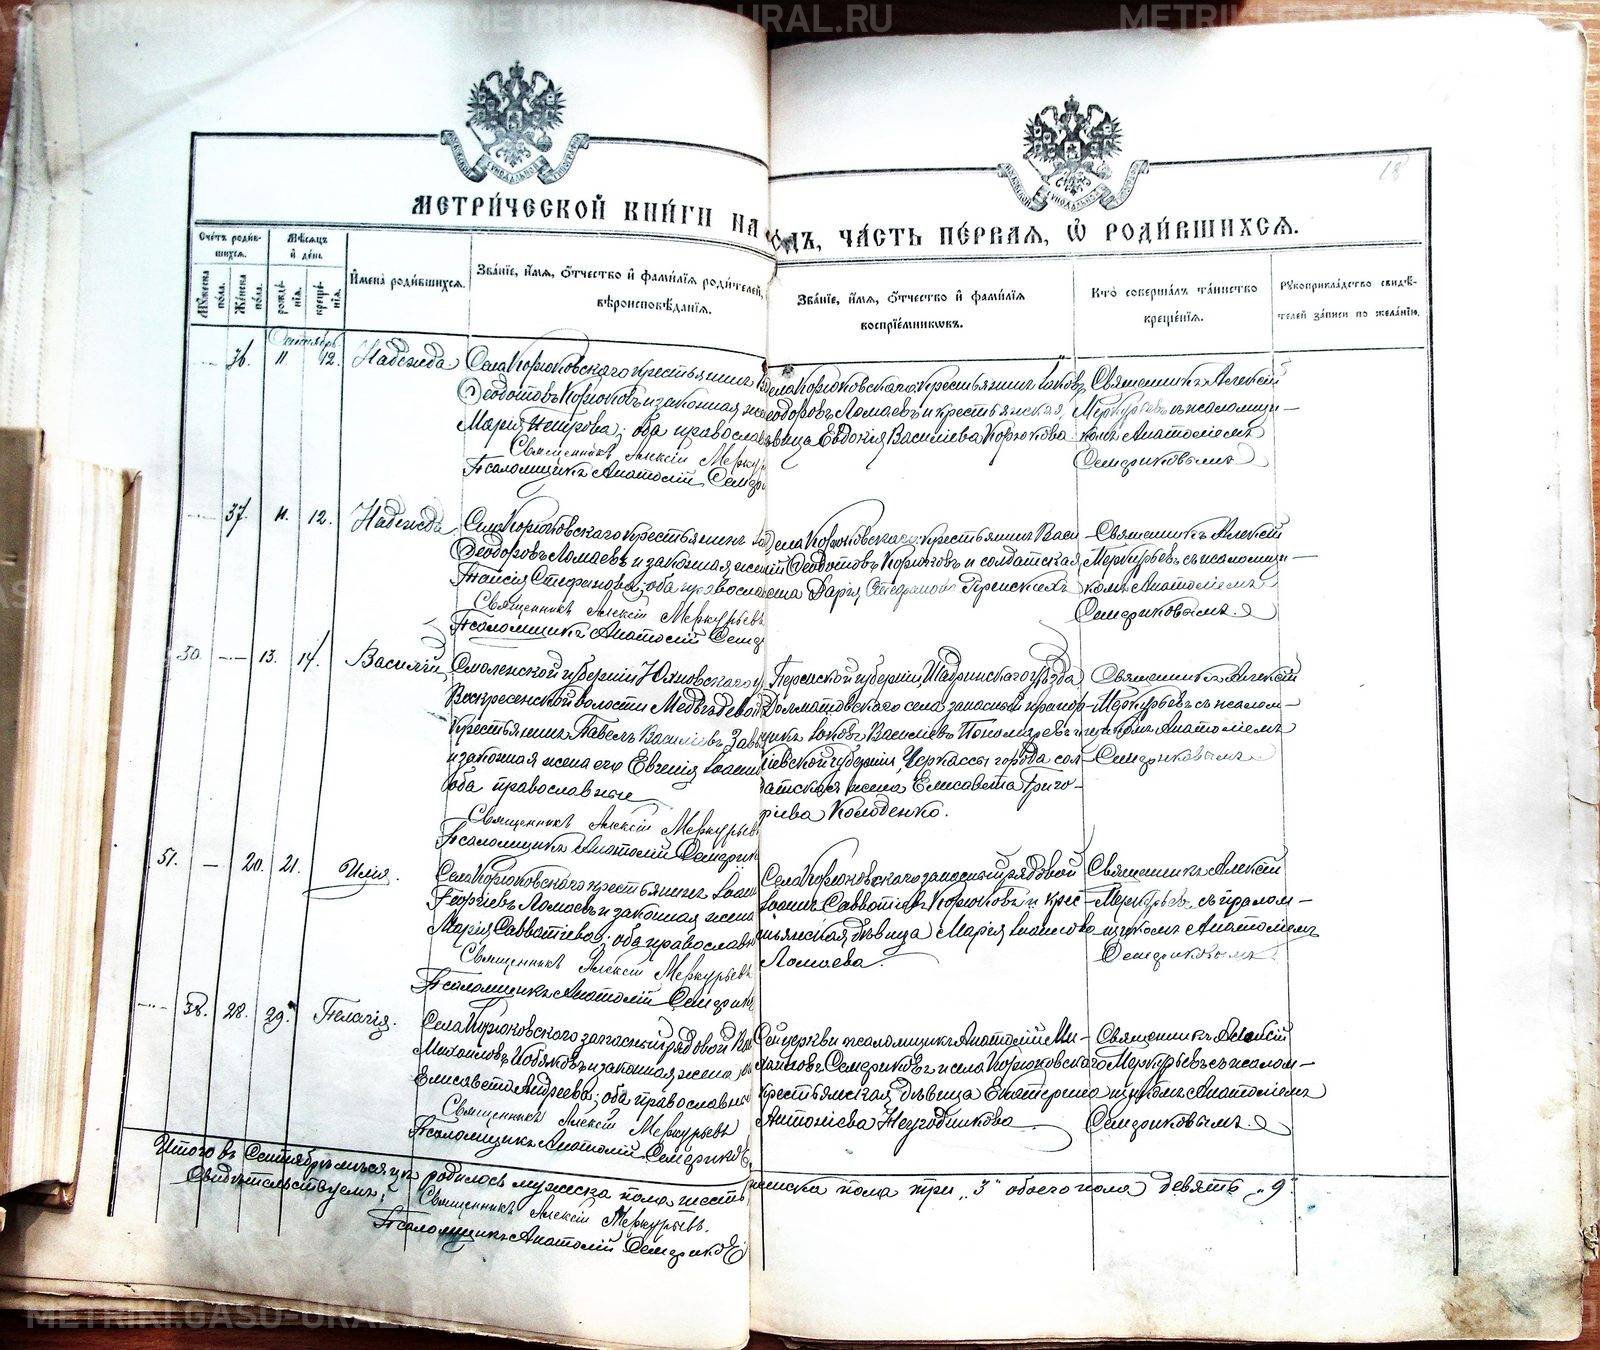 METRIKI.GASU-URAL.RU
METRIKI.GASU-URAL.RU
18
МЕТРИ́ЧЕСКОЙ КНИ́ГИ НА
ГОДЪ, ЧА́СТЬ ПЕ́РВАЯ, Ѡ РОДИ́ВШИХСЯ.
Сче́тъ роди́в-
шихся.
Мѣ́сяцъ
и̂ де́нь
Мꙋ́жеска по́ла.
Же́нска по́ла.
рожде́нїя.
креще́нїя.
И̂мена̀ роди́вшихся.
Зва́нїе, и̂́мя, ѻ̂́тчество и̂ фами́лїя роди́телей,
вѣроисповѣ́данїя.
Зва́нїе, и̂́мя, ѻ̂́тчество и̂ фами́лїя
воспрїе́мникѡвъ.
Кто̀ соверша́лъ та́инство
креще́нїя.
Рꙋкоприкла́дство свидѣ́-
телей за́писи по жела́нїю.
Сентябрь
36. 11 12. Надежда
Села Корюковскаго крестьянинъ
Ѳеодотовъ Корюковъ и законная
Марія Петрова; оба православ
Священникъ Алексій Меркур
Псаломщикъ Анатолій Семер
села Корюковскаго крестьянинъ Іаковъ
Ѳеодоровъ Ломаевъ и крестьянская
дѣвица Евдокія Василіева Корюкова
Священникъ Алексій
Меркурьевъ съ псаломщи-
комъ Анатоліемъ
Семериковымъ
37. 11. 12. Надежда
Села Корюковскаго крестьянинъ
Ѳеодоровъ Ломаевъ и законная
Таисія Стефанова; оба православ
Священникъ Алексій Меркурьевъ
Псаломщикъ Анатолій Семер
Села Корюковскаго крестьянинъ Васи
лій Ѳеодотовъ Корюковъ и солдатская
Дарія Стефанова
Священникъ Алексій
Меркурьевъ съ псаломщи-
комъ Анатоліемъ
Семериковымъ
50. 13. 14. Василій
Смоленской губерніи Юхновскаго у
Воскресенской волости
Крестьянинъ Павелъ Василіевъ
и законная жена его Евгенія Іоанн
оба православные
Священникъ Алексій Меркурьев
Псаломщикъ Анатолій Семерик
Пермской губерніи, Шадринскаго уѣзда
Долматовскаго села запасный прапор-
щикъ Іаковъ Василіевъ Пономаревъ и
Кіевской губерніи, Черкассы города сол-
датская жена Елисавета Григо-
ріева Колоденко.
Священникъ Алексій
Меркурьевъ съ псалом-
щикомъ Анатоліемъ
Семериковымъ
51. 20. 21. Илія.
Села Корюковскаго крестьянинъ Іоанн
Георгіевъ Ломаевъ и законная жена
Марія Савватіева; оба православн
Священникъ Алексій Меркурьевъ
Псаломщикъ Анатолій Семерик
Села Корюковскаго запасный рядовой
Іоаннъ Савватіевъ Корюковъ и крес-
тьянская дѣвица Марія Іоаннова
Ломаева.
Священникъ Алексій
Меркурьевъ съ псалом-
щикомъ Анатоліемъ
Семериковымъ
38. 28. 29. Пелагія.
Села Корюковскаго запасный рядовой
Михаиловъ и законная жена
Елисавета Андреева; оба православные
Священникъ Алексій Меркурьевъ
Псаломщикъ Анатолій Семериковъ
Сей церкви псаломщикъ Анатолій Ми-
хаиловъ Семериковъ и села Корюковскаго
крестьянская дѣвица Екатерина
Антоніева Неугодникова
Священникъ Алексій
Меркурьевъ съ псалом-
щикомъ Анатоліемъ
Семериковымъ
Итого въ Сентябрѣ мѣсяцѣ родилось мужеска пола шесть
женска пола три „3“ обоего пола девять „9“.
Свидѣтельствуемъ:
Священникъ Алексій Меркурьевъ.
Псаломщикъ Анатолій Семериковъ
METRIKI.GASU-URAL.RU
METRIKI.GASU-URAL.RU